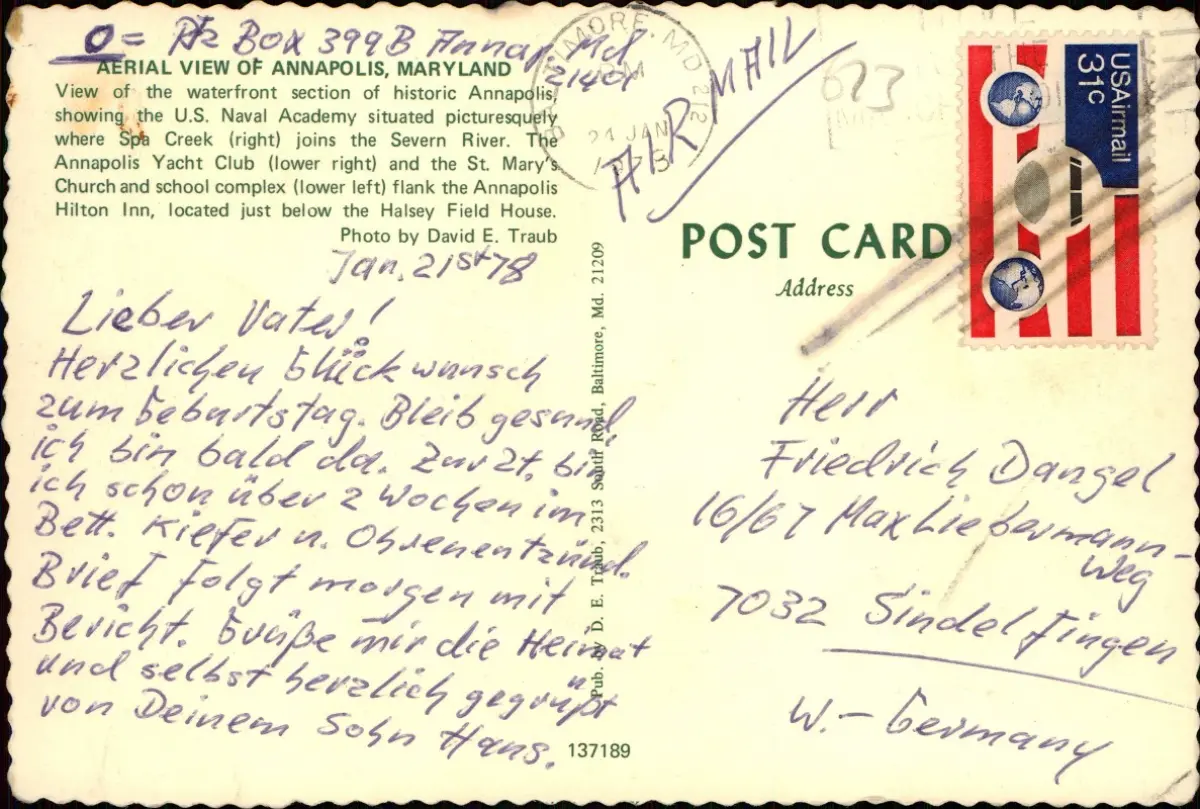 O = Rt2 Box 399B Annap. Md
21401
AERIAL VIEW OF ANNAPOLIS, MARYLAND
View of the waterfront section of historic Annapolis,
showing the U.S. Naval Academy situated picturesquely
where Spa Creek (right) joins the Severn River. The
Annapolis Yacht Club (lower right) and the St. Mary's
Church and school complex (lower left) flank the Annapolis
Hilton Inn, located just below the Halsey Field House.
Photo by David E. Traub
Jan. 21st 78
Lieber Vater!
Herzlichen Glückwunsch
zum Geburtstag. Bleib gesund,
ich bin bald da. Zur Zt. bin
ich schon über 2 Wochen im
Bett. Kiefer u. Ohrenentzünd.
Brief folgt morgen mit
Bericht. Grüße mir die Heimat
und selbst herzlich gegrüßt
von Deinem Sohn Hans.
Pub. by D. E. Traub, 2313 South Road, Baltimore, Md. 21209
137189
BALTIMORE, MD 212
PM
21 JAN
AIR MAIL
623
USAirmail
31c
POST CARD
Address
Herr
Friedrich Dangel
16/67 Max Liebermann-
Weg
7032 Sindelfingen
W.-Germany